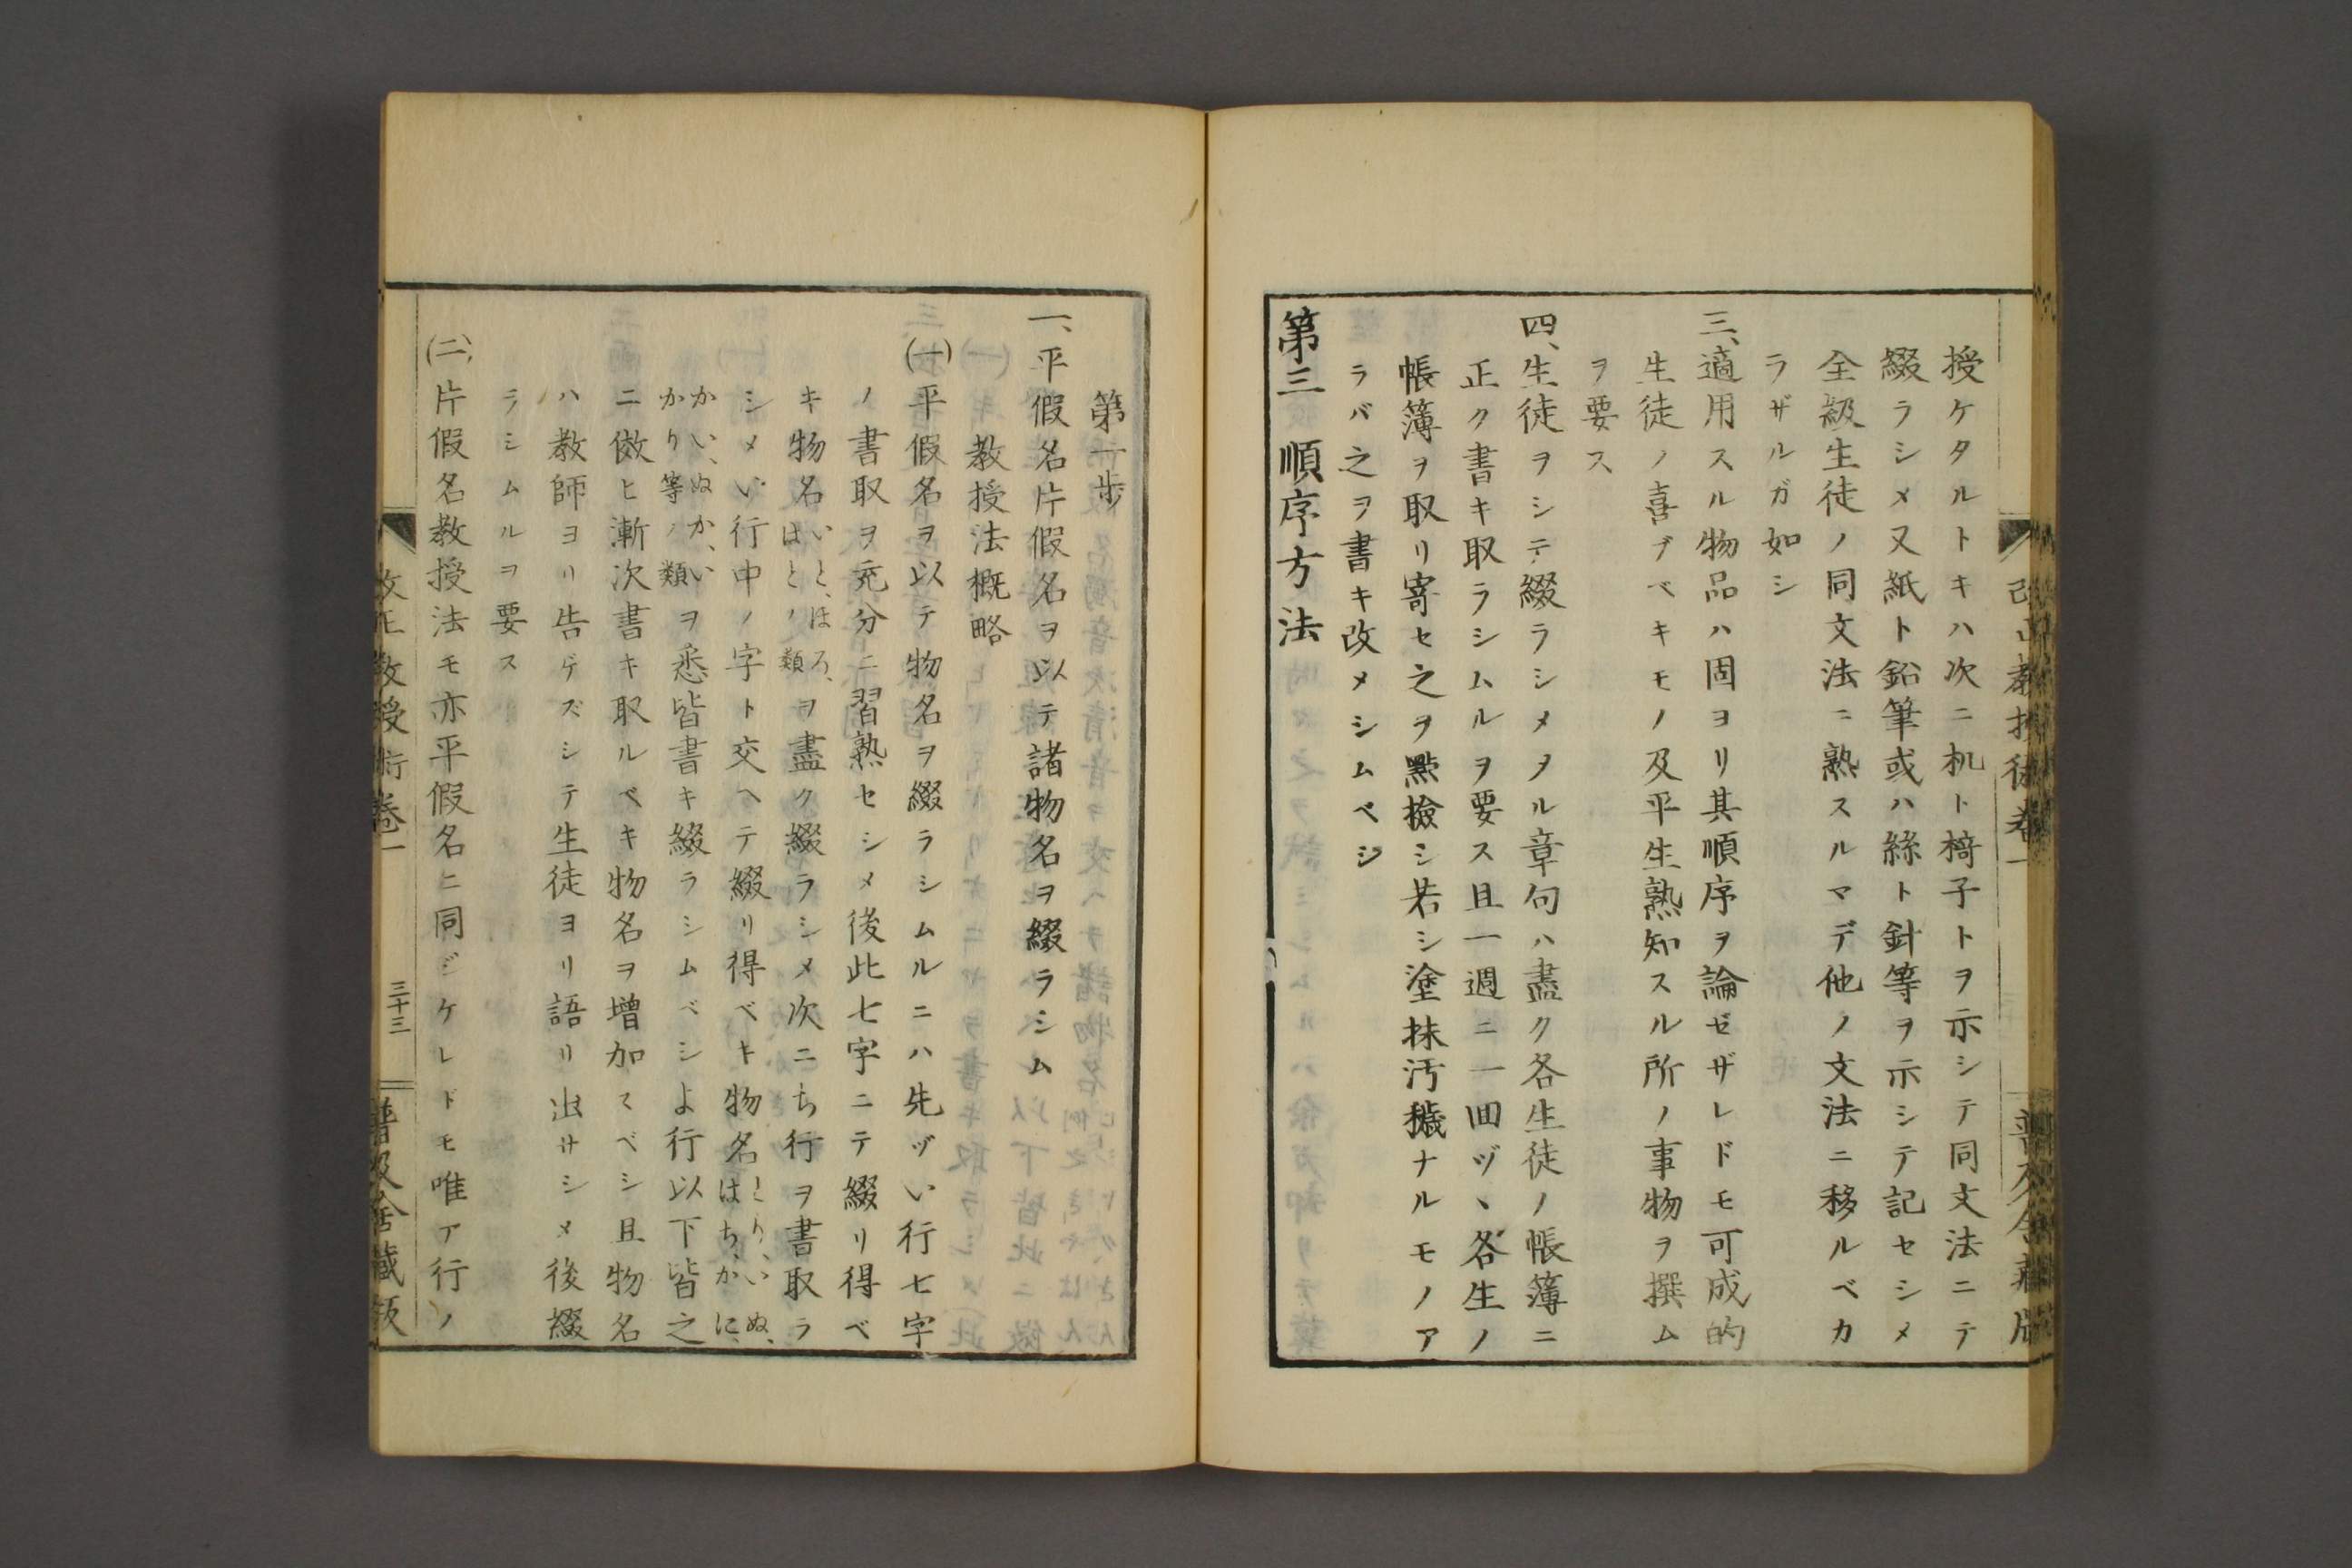 授ケタルトキハ次ニ机ト椅子トヲ示シテ同文法ニテ
綴ラシメ又紙ト鉛筆或ハ絲ト針等ヲ示シテ記セシメ
全級生徒ノ同文法ニ熟スルマデ他ノ文法ニ移ルベカ
ラザルガ如シ
三、適用スル物品ハ固ヨリ其順序ヲ論ゼザレドモ可成的
生徒ノ喜ブベキモノ及平生熟知スル所ノ事物ヲ撰ム
ヲ要ス
四、生徒ヲシテ綴ラシメタル章句ハ盡ク各生徒ノ帳簿ニ
正ク書キ取ラシムルヲ要ス且一週ニ一回ヅヽ各生ノ
帳簿ヲ取リ寄セ之ヲ點撿シ若シ塗抹汚穢ナルモノア
ラバ之ヲ書キ改メシムベシ
第三 順序方法
第一歩
一、平假名片假名ヲ以テ諸物名ヲ綴ラシム
教授法概略
(一)平假名ヲ以テ物名ヲ綴ラシムルニハ先ヅい行七字
ノ書取ヲ充分ニ習熟セシメ後此七字ニテ綴リ得ベ
キ物名いと、ほろ、はとノ類ヲ盡ク綴ラシメ次ニち行ヲ書取ラ
シメい行中ノ字ト交ヘテ綴リ得ベキ物名とり、いぬ、はち、かに、
かい、ぬか、いかり等ノ類ヲ悉皆書キ綴ラシムベシよ行以下皆之
ニ傚ヒ漸次書キ取ルベキ物名ヲ増加スベシ且物名
ハ教師ヨリ告ゲズシテ生徒ヨリ語リ出サシメ後綴
ラシムルヲ要ス
(二)片假名教授法モ亦平假名ニ同ジケレドモ唯ア行ノ
改正教授術卷一
三十三
普及舍藏版